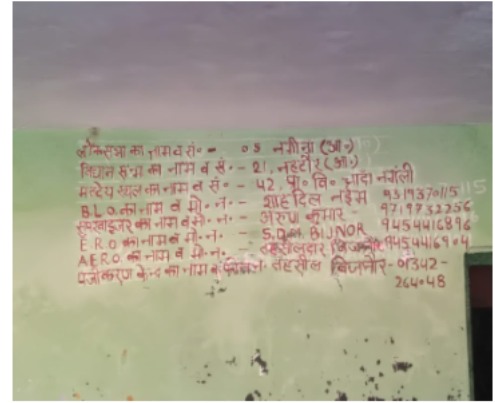 लोकसभा का नाम व सं० - 05 नगीना (आ०)
विधान सभा का नाम व सं० - 21 नहटौर (आ०)
मतदेय स्थल का नाम व सं० - 42 प्रा० वि० चांदा नंगली
B.L.O. का नाम व मो० न० - शाहदिल नईम 9319370115
सुपरवाइजर का नाम व मो० न० - अरुण कुमार - 9719732256
E.R.O का नाम व मो० न० - S.D.M. BIJNOR 9454416896
A.E.R.O. का नाम व मो० न० - तहसीलदार बिजनौर 9454416904
पंजीकरण केन्द्र का नाम व तहसील बिजनौर - 01342-
264048